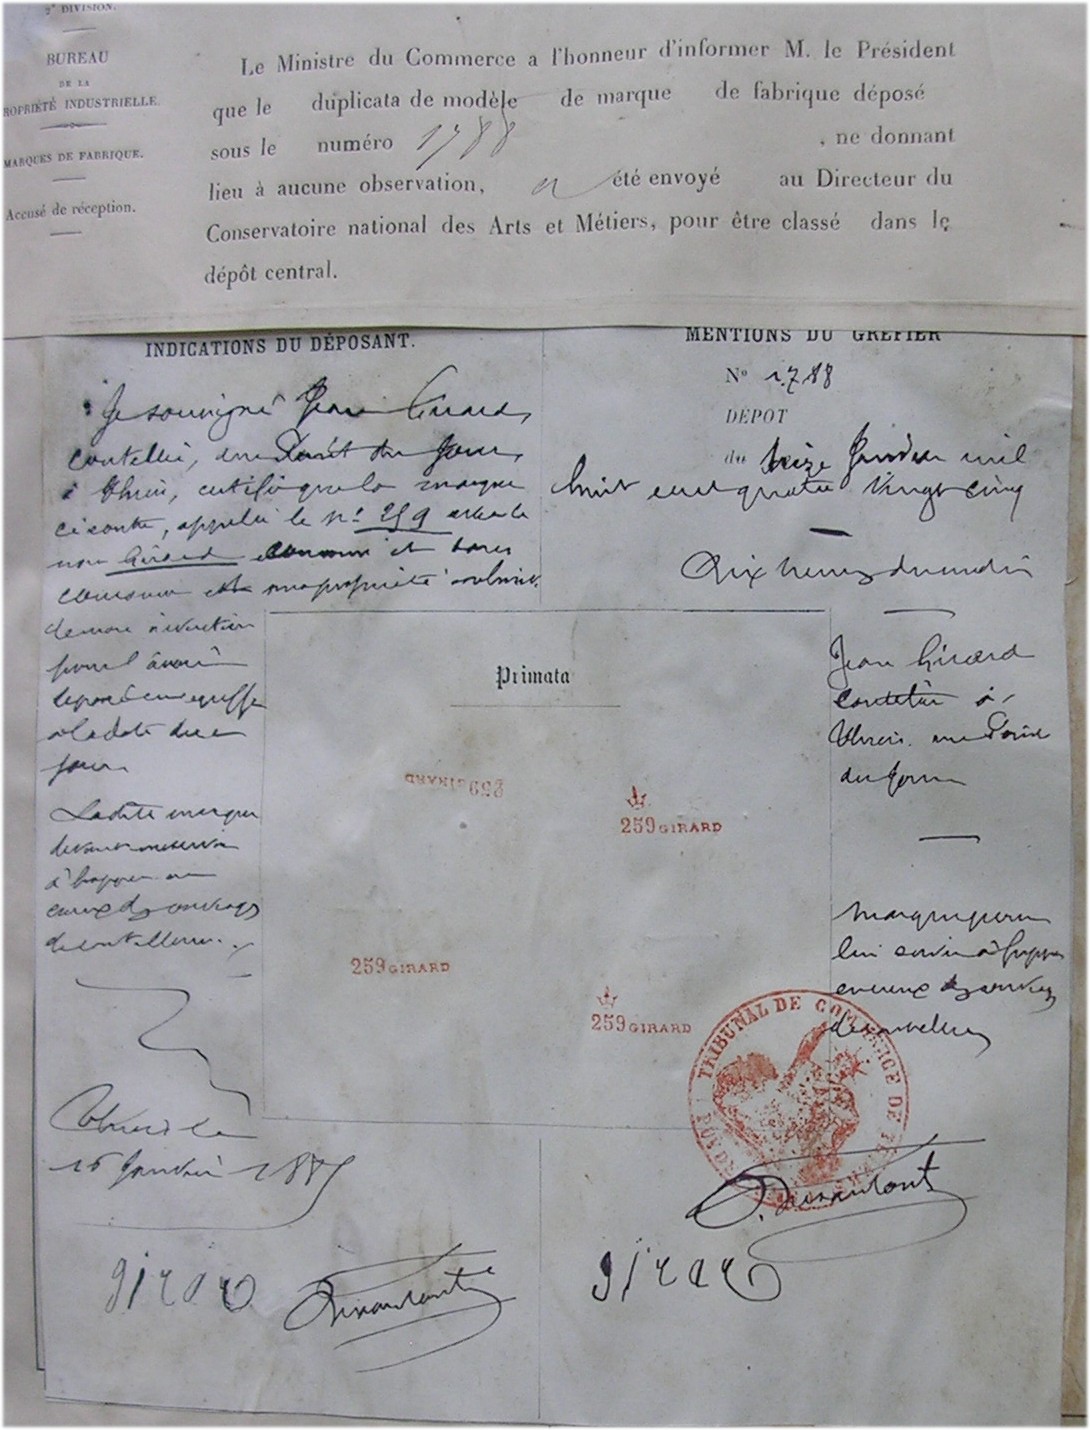 2e DIVISION.
BUREAU
DE LA
ROPRIÉTÉ INDUSTRIELLE.
MARQUES DE FABRIQUE.
Accusé de réception.
Le Ministre du Commerce a l'honneur d'informer M. le Président
que le duplicata de modèle de marque de fabrique déposé
sous le numéro 1788 , ne donnant
lieu à aucune observation, a été envoyé au Directeur du
Conservatoire national des Arts et Métiers, pour être classé dans le
dépôt central.
INDICATIONS DU DÉPOSANT.
Je soussigné Jean Girard,
coutellier, rue du Jour,
à Thiers, certifie que la marque
ci contre, appelée le No 259 avec le
nom Girard couronné et sans
couronne est ma propriété
à
pour l'avoir
déposé au greffe
à la date de ce
jour
Ladite marque
devant me servir
à frapper
creux des ouvrages
de coutellerie.
Thiers le
16 Janvier 1885
girard
MENTIONS DU GREFIER
No 1788
DÉPOT
du seize Janvier mil
huit cent quatre vingt cinq
Dix heures du matin
Jean Girard
coutelier à
Thiers rue
du Jour
Marque pour
lui servir à frapper
en creux des ouvrages
de coutellerie
Primata
259 GIRARD
259 GIRARD
259 GIRARD
259 GIRARD
TRIBUNAL DE COMMERCE DE
girard